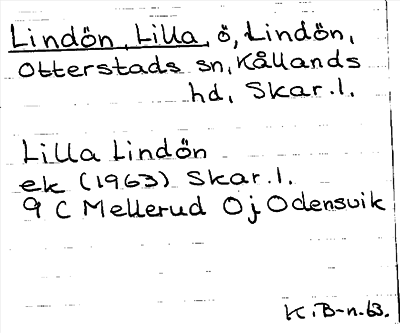 Lindön, Lilla, ö, Lindön,
Otterstads sn, Kållands
hd, Skar.l.
Lilla Lindön
ek (1963) Skar.l.
9 C Mellerud Oj Odensvik
K.B-n.63.